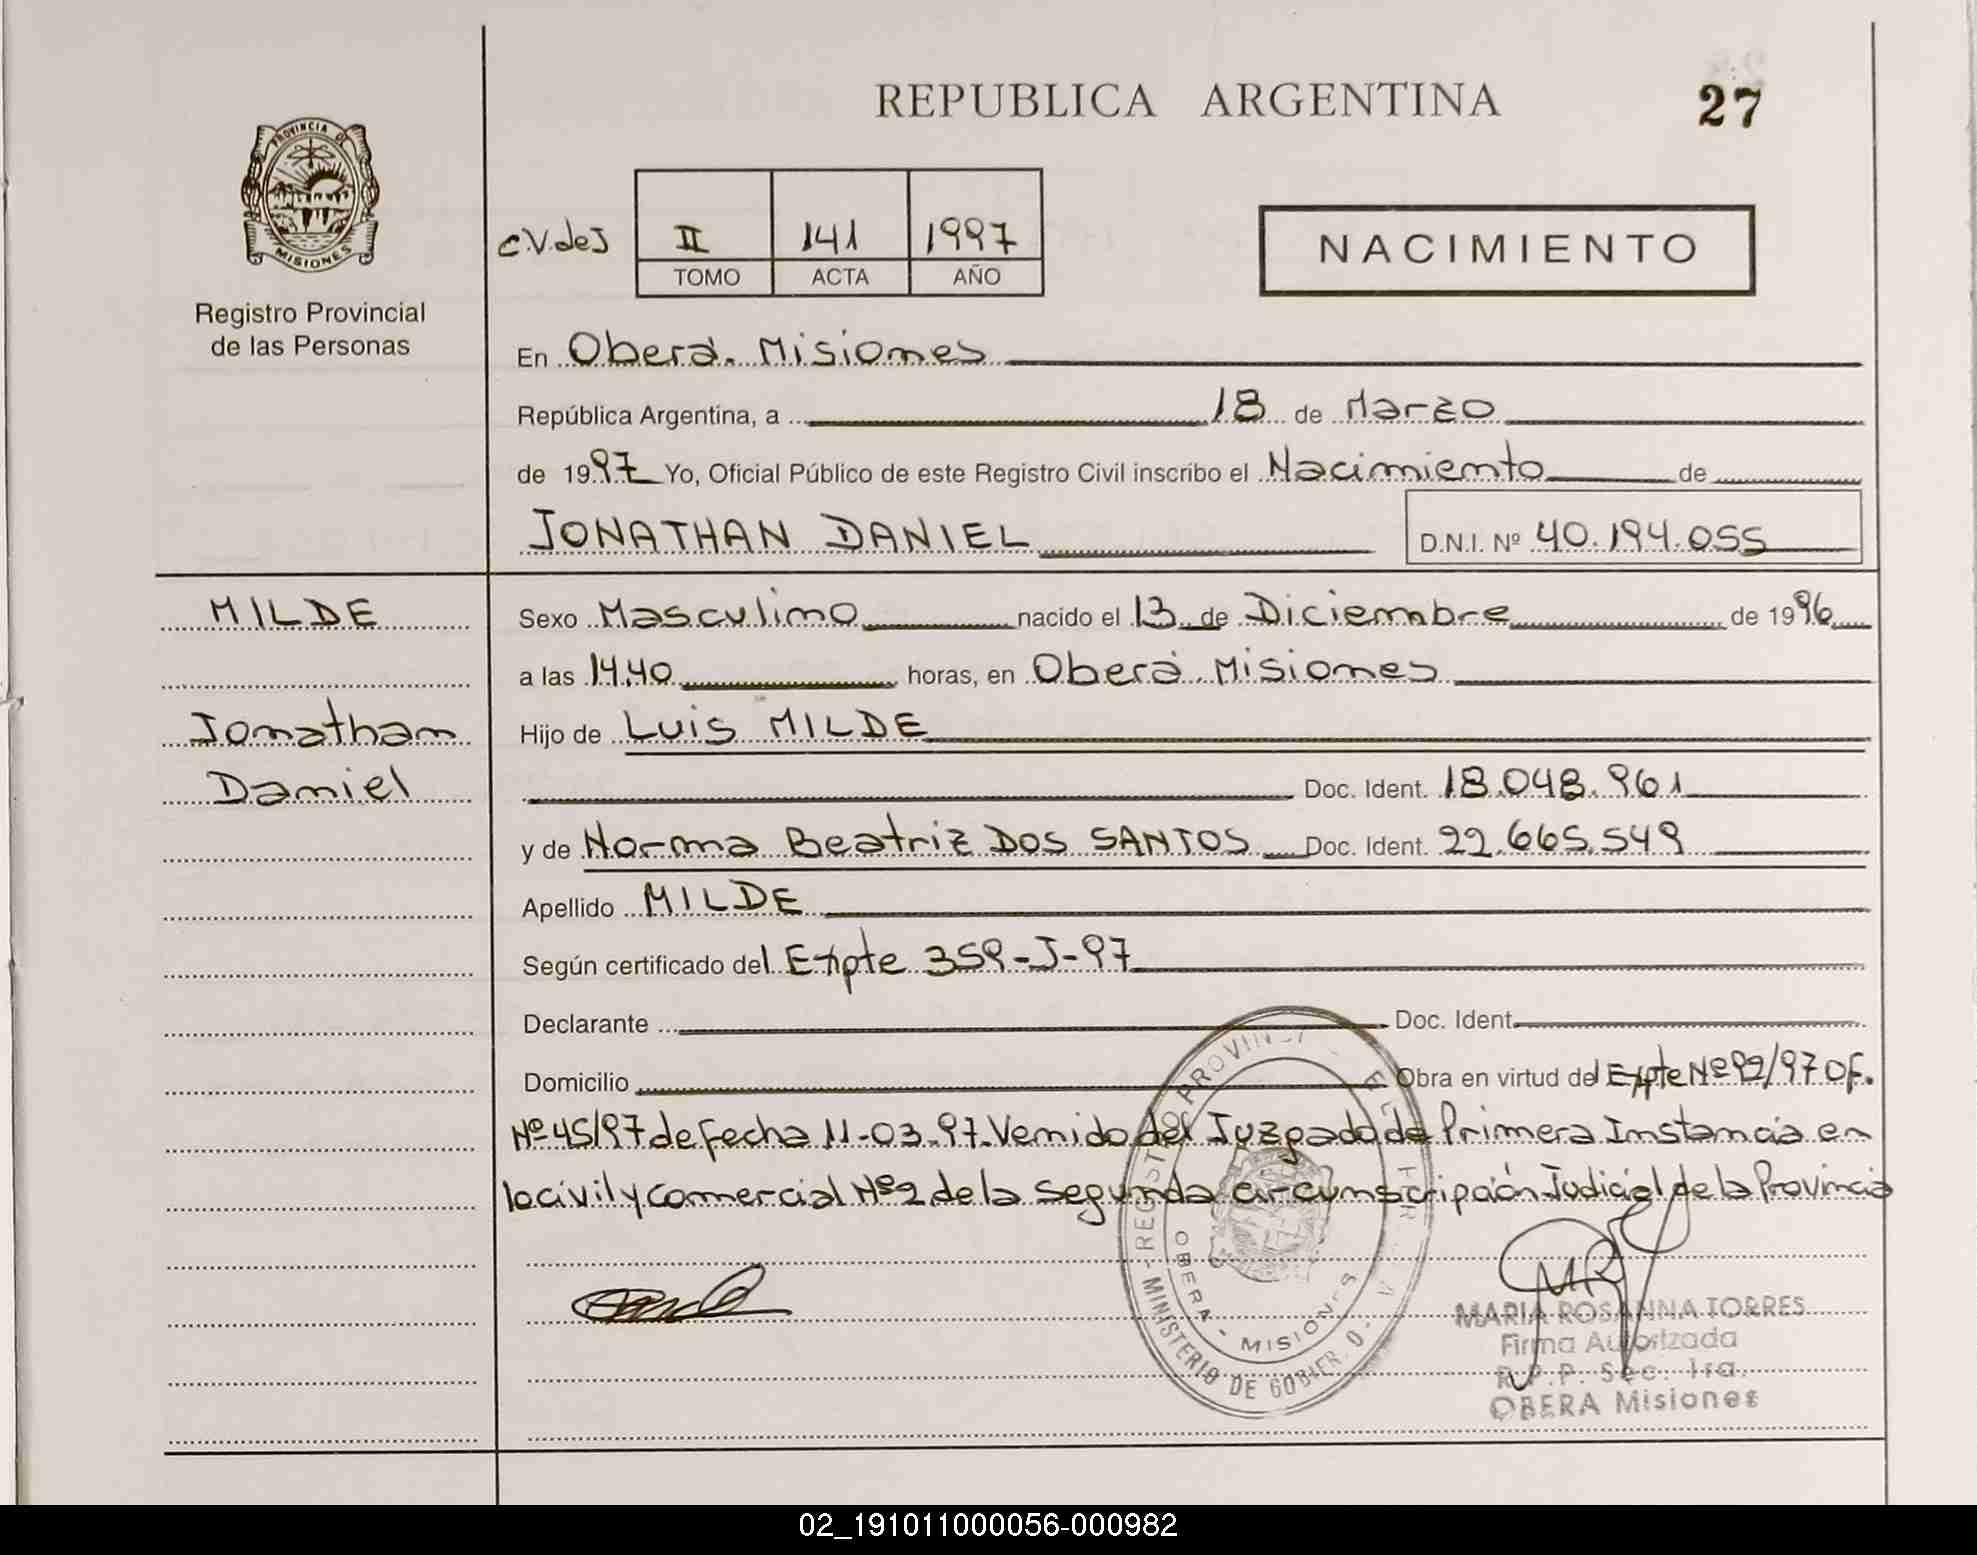 REPUBLICA ARGENTINA
27
PROVINCIA DE
MISIONES
Registro Provincial
de las Personas
C.V.deJ
II 141 1997
TOMO ACTA AÑO
NACIMIENTO
En Oberá. Misiones
República Argentina, a 18 de Marzo
de 1997 Yo, Oficial Público de este Registro Civil inscribo el Nacimiento de
JONATHAN DANIEL
D.N.I. Nº 40.194.055
MILDE
Jonathan
Daniel
Sexo Masculino nacido el 13 de Diciembre de 1996
a las 14.40 horas, en Oberá. Misiones
Hijo de Luis MILDE
Doc. Ident. 18.048.961
y de Norma Beatriz DOS SANTOS Doc. Ident. 22.665.549
Apellido MILDE
Según certificado del Expte 359-J-97
Declarante Doc. Ident.
Domicilio Obra en virtud del Expte Nº 92/97 OF.
Nº 45/97 de fecha 11-03-97. Venido del Juzgado de Primera Instancia en
lo civil y comercial Nº2 de la Segunda circunscripción Judicial de la Provincia
MINISTERIO DE GOBIER
OBERA - MISIONES
MARIA ROSANNA TORRES
Firma Autorizada
R.P.P. Sec. 1ra.
OBERA Misiones
02_191011000056-000982